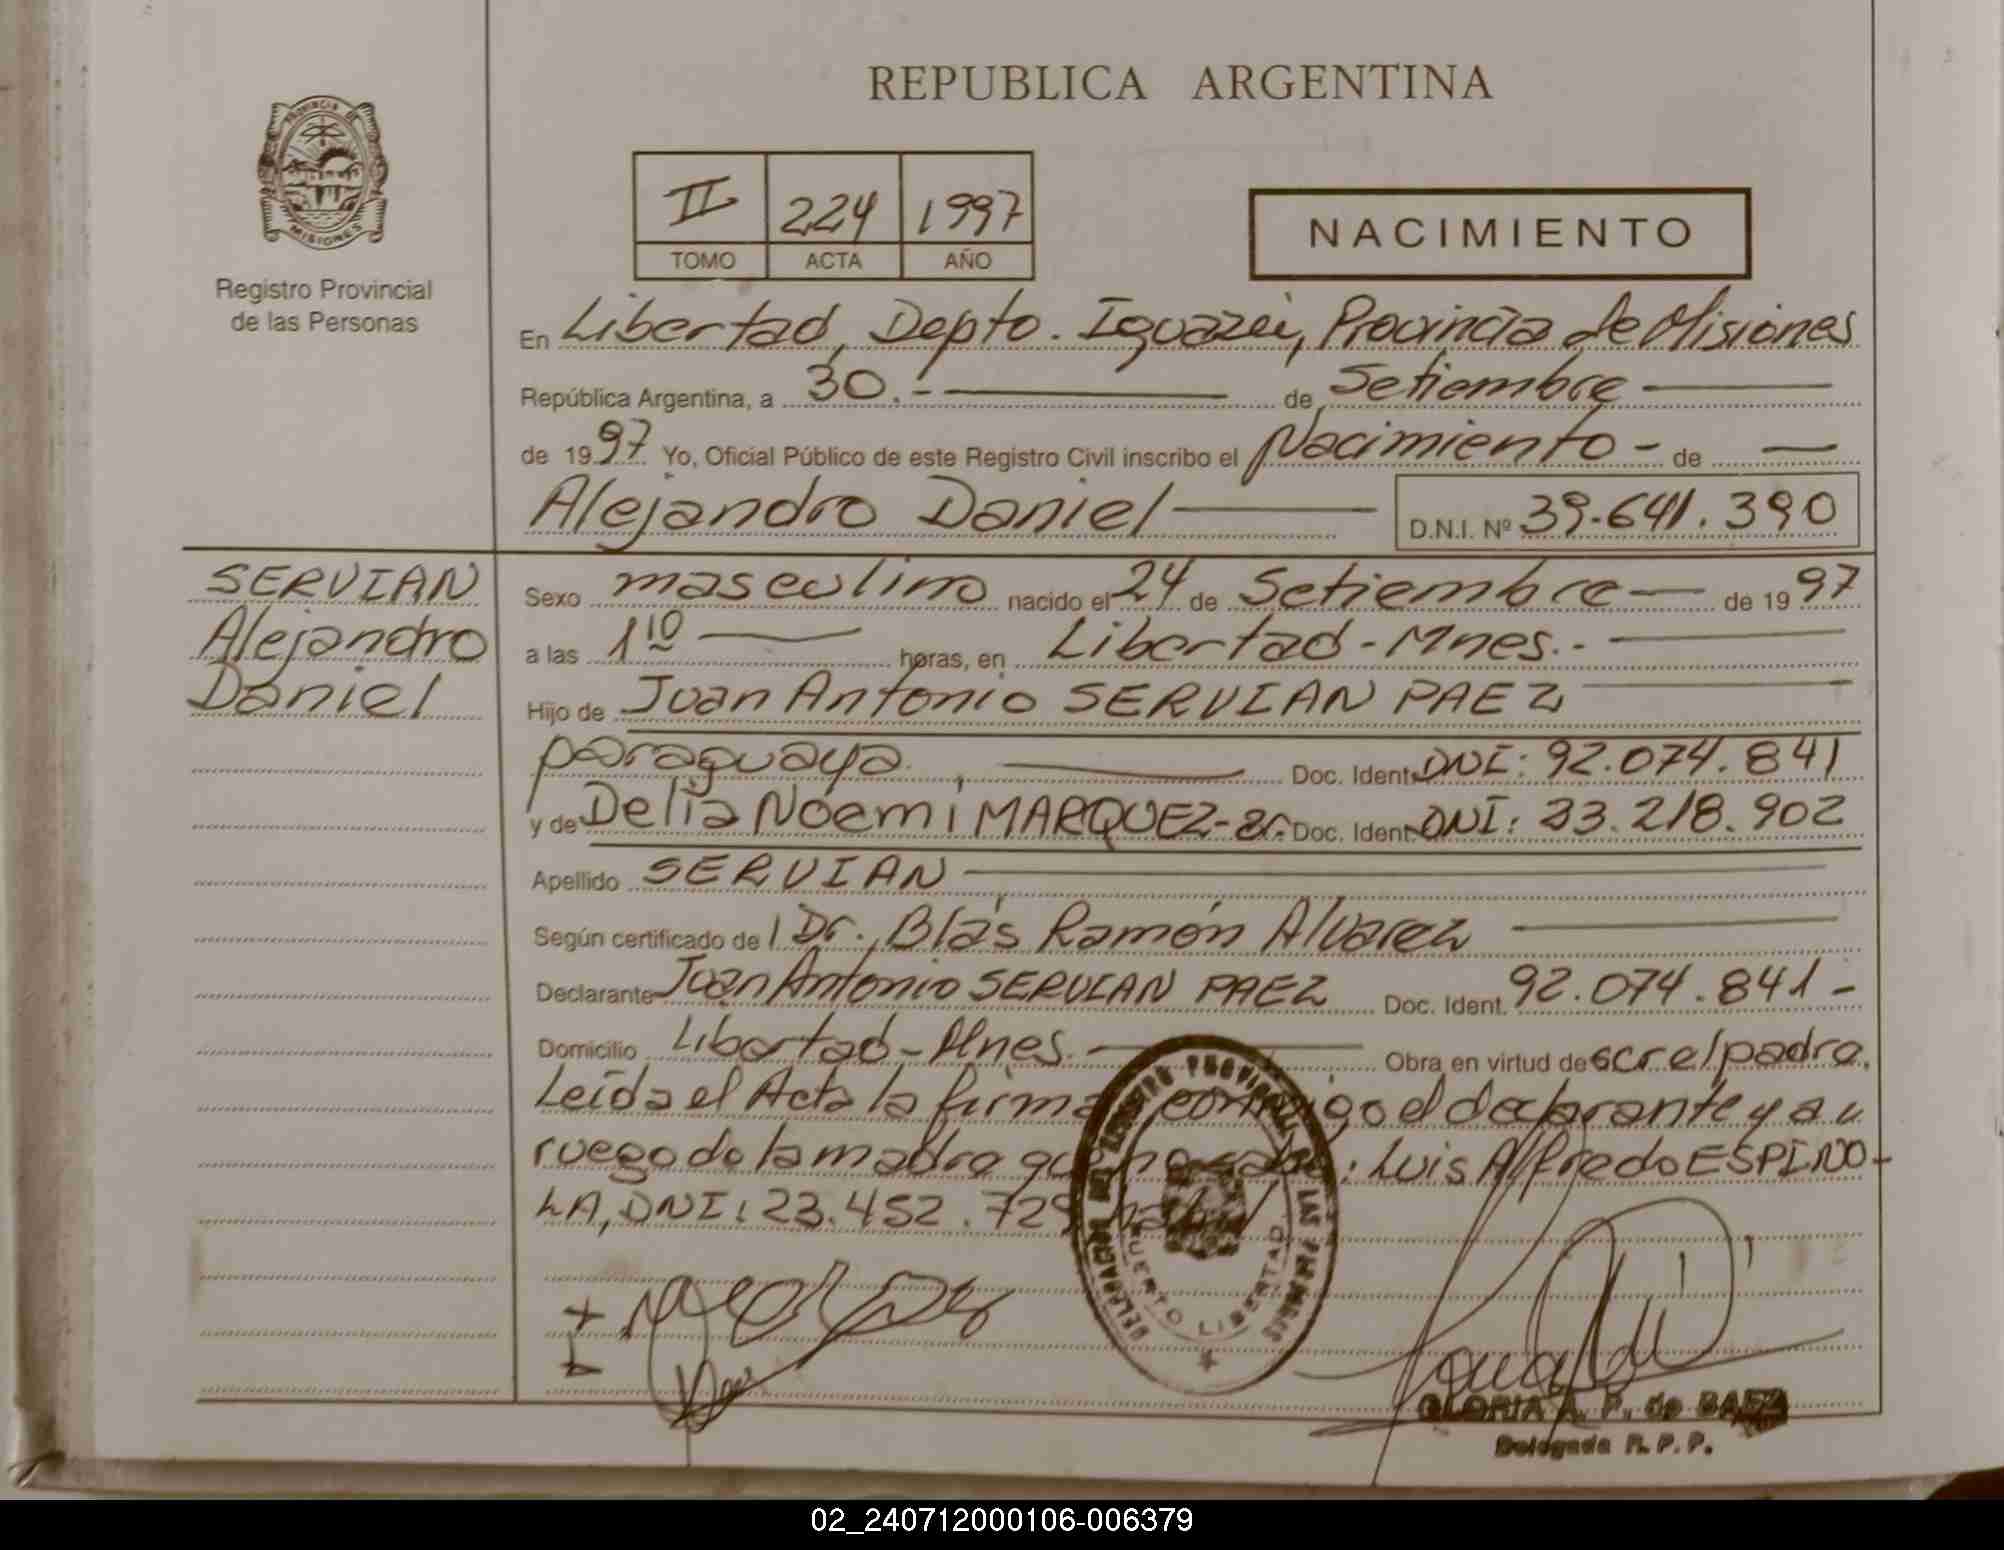 REPUBLICA ARGENTINA
PROVINCIA DE
MISIONES
Registro Provincial
de las Personas
II 224 1997
TOMO ACTA AÑO
NACIMIENTO
En Libertad, Depto. Iguazú, Provincia de Misiones
República Argentina, a 30.- de Setiembre
de 1997 Yo, Oficial Público de este Registro Civil inscribo el Nacimiento - de
Alejandro Daniel D.N.I. Nº 39.641.390
SERVIAN
Alejandro
Daniel
Sexo masculino nacido el 24 de Setiembre de 1997
a las 1 10 horas, en Libertad - Mnes.-
Hijo de Juan Antonio SERVIAN PAEZ
paraguaya. Doc. Ident. DNI: 92.074.841
y de Delia Noemi MARQUEZ - ar. Doc. Ident. DNI: 33.218.902
Apellido SERVIAN
Según certificado del Dr. Blás Ramón Alvarez
Declarante Juan Antonio SERVIAN PAEZ Doc. Ident. 92.074.841 -
Domicilio Libertad - Mnes. Obra en virtud de ser el padre.
Leída el Acta la firma conmigo el declarante y a
ruego de la madre que no : Luis Alfredo ESPINO-
LA, DNI: 23.452.729
DELEGACION DEL REGISTRO PROVINCIAL DE LAS PERSONAS
PUERTO LIBERTAD
GLORIA A. P. de BAEZ
Delegada R. P. P.
02_240712000106-006379